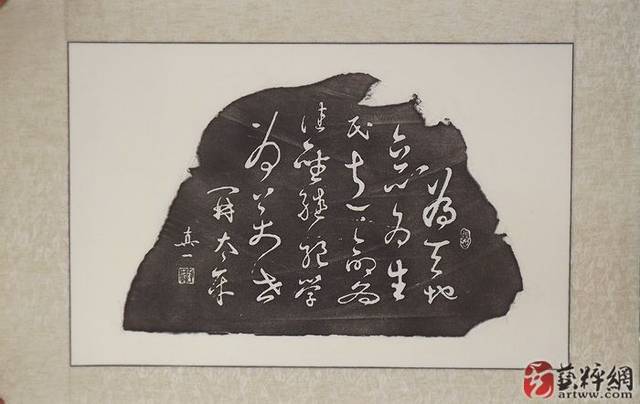 為天地
立心為生
民立命為
往聖繼絕學
為萬世
開太平
真一
藝粹網
artww.com